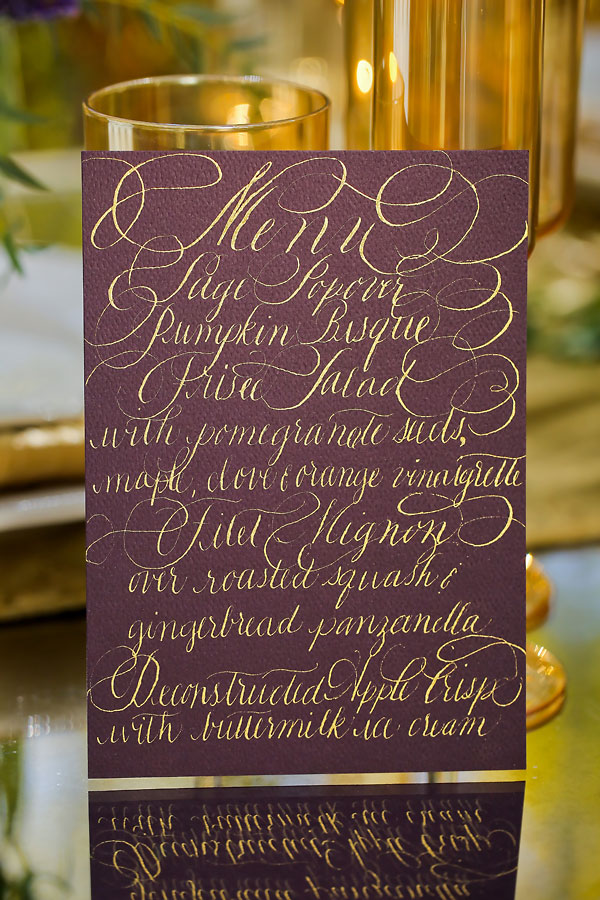 Menu
Sage Popover
Pumpkin Bisque
Frisee Salad
with pomegranate seeds,
maple, clove & orange vinaigrette
Filet Mignon
over roasted squash &
gingerbread panzanella
Deconstructed Apple Crisp
with buttermilk ice cream